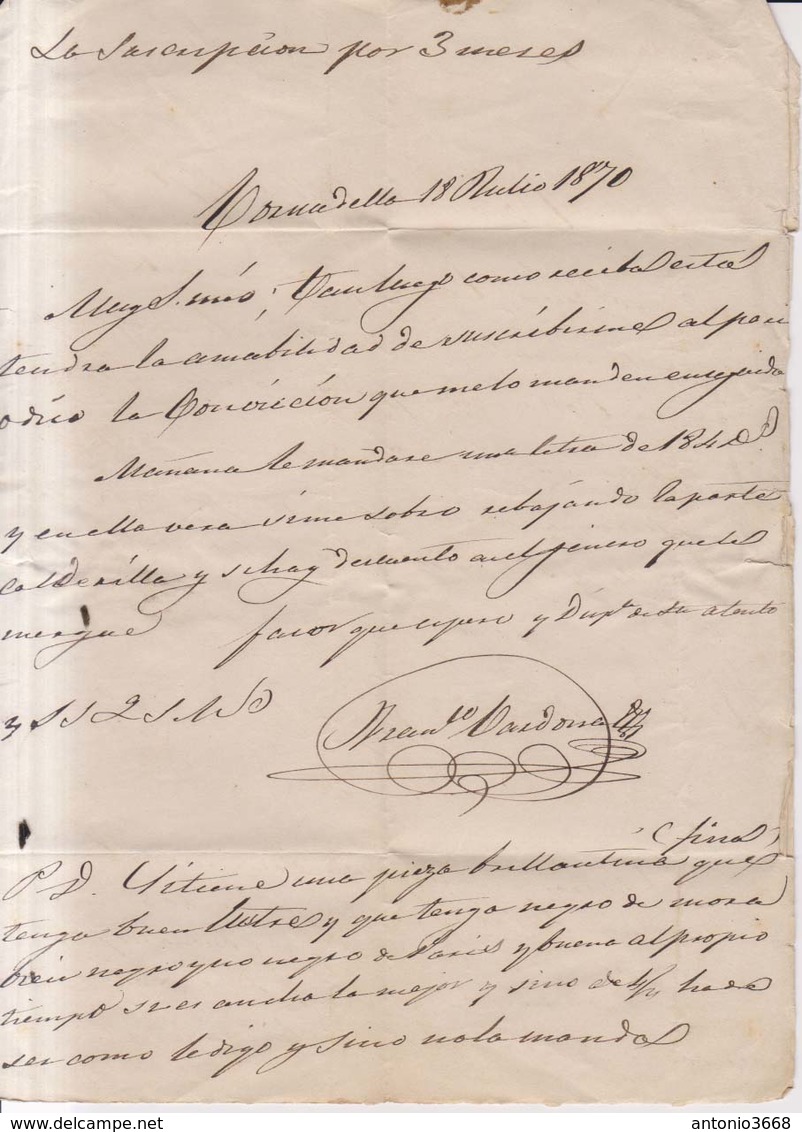 La Suscripcion por 3 meses
Cornudella 18 Julio 1870
Muy S. mio; Tan luego como reciba esta
tendra la amabilidad de suscribirme al peri
odico la Conviccion que me lo manden enseguida
Mañana le mandare una letra de 184
y en ella vera si me sobro rebajando la parte
calderilla y si hay descuento en el genero que le
mergue favor que espero y Dispt. de su atento
y S S Q S M B
Franco Cardona
(fina)
P D. Si tiene una pieza brillantina que
tenga buen lustre y que tenga negro de mora
bien negro y no negro de Paris y buena al propio
tiempo si es ancha la mejor y sino de 4/4 ha de
ser como le digo y sino no la manda
antonio3668